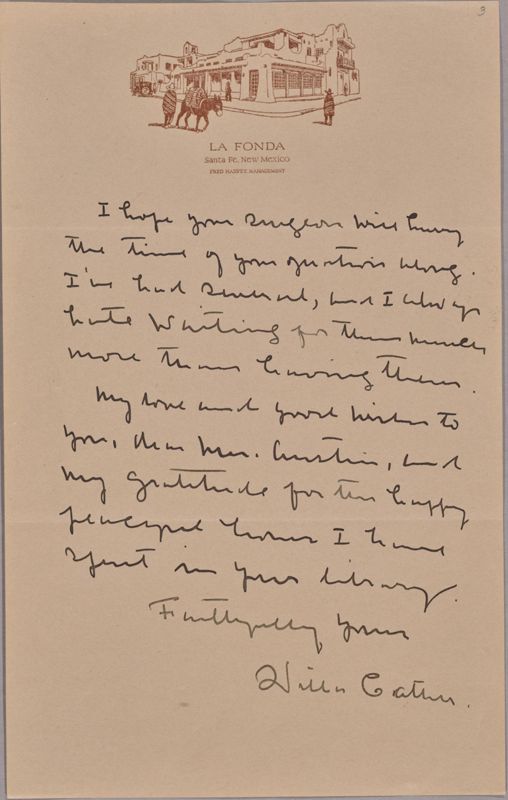 3
LA FONDA
Santa Fe, New Mexico
FRED HARVEY MANAGEMENT
I hope your surgeon will hurry
the time of your operation along.
I've had several, and I always
hate waiting for them much
more than having them.
My love and good wishes to
you, dear Mrs. Austin, and
my gratitude for the happy
peaceful hours I have
spent in your library.
Faithfully yours
Willa Cather.